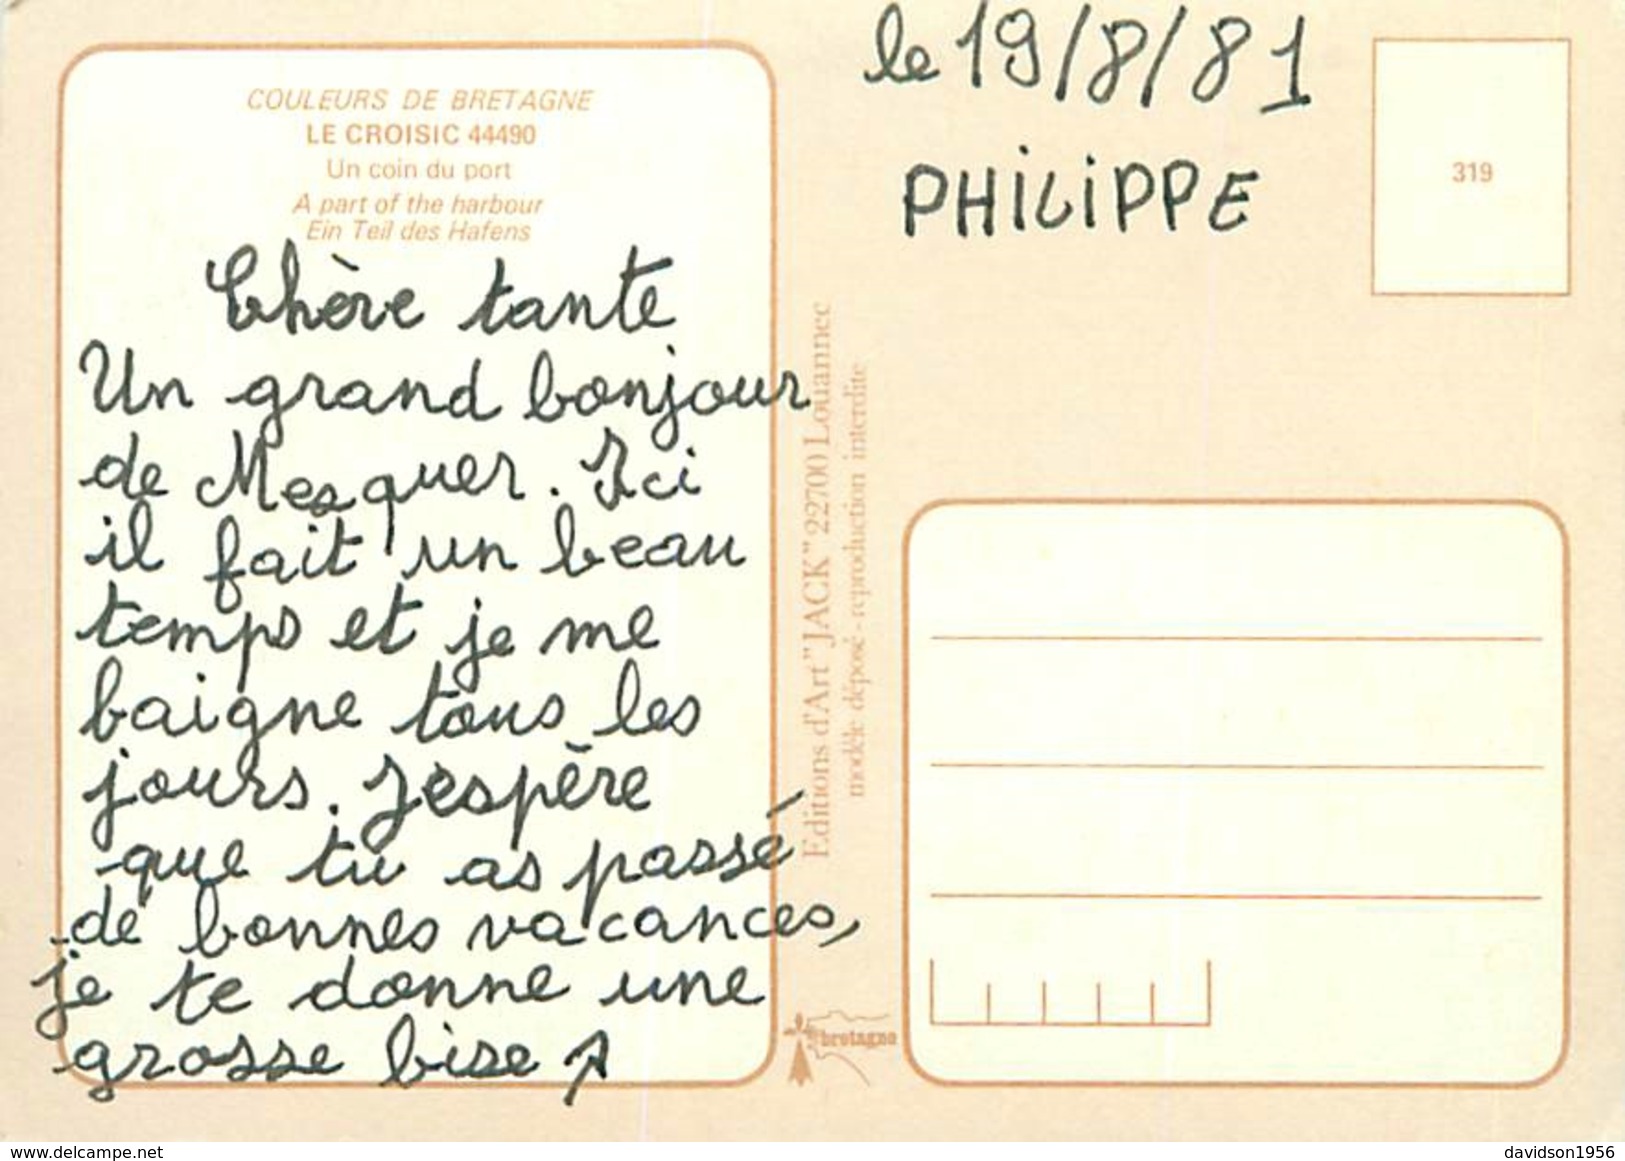 COULEURS DE BRETAGNE
LE CROISIC 44490
Un coin du port
A part of the harbour
Ein Teil des Hafens
Chère tante
Un grand bonjour
de Mesquer. Ici
il fait un beau
temps et je me
baigne tous les
jours. J'espère
que tu as passé
de bonnes vacances,
je te donne une
grosse bise
Editions d'Art "JACK" 22700 Louannec
modèle déposé - reproduction interdite
bretagne
le 19/8/81
PHILIPPE
319
delcampe.net
davidson1956